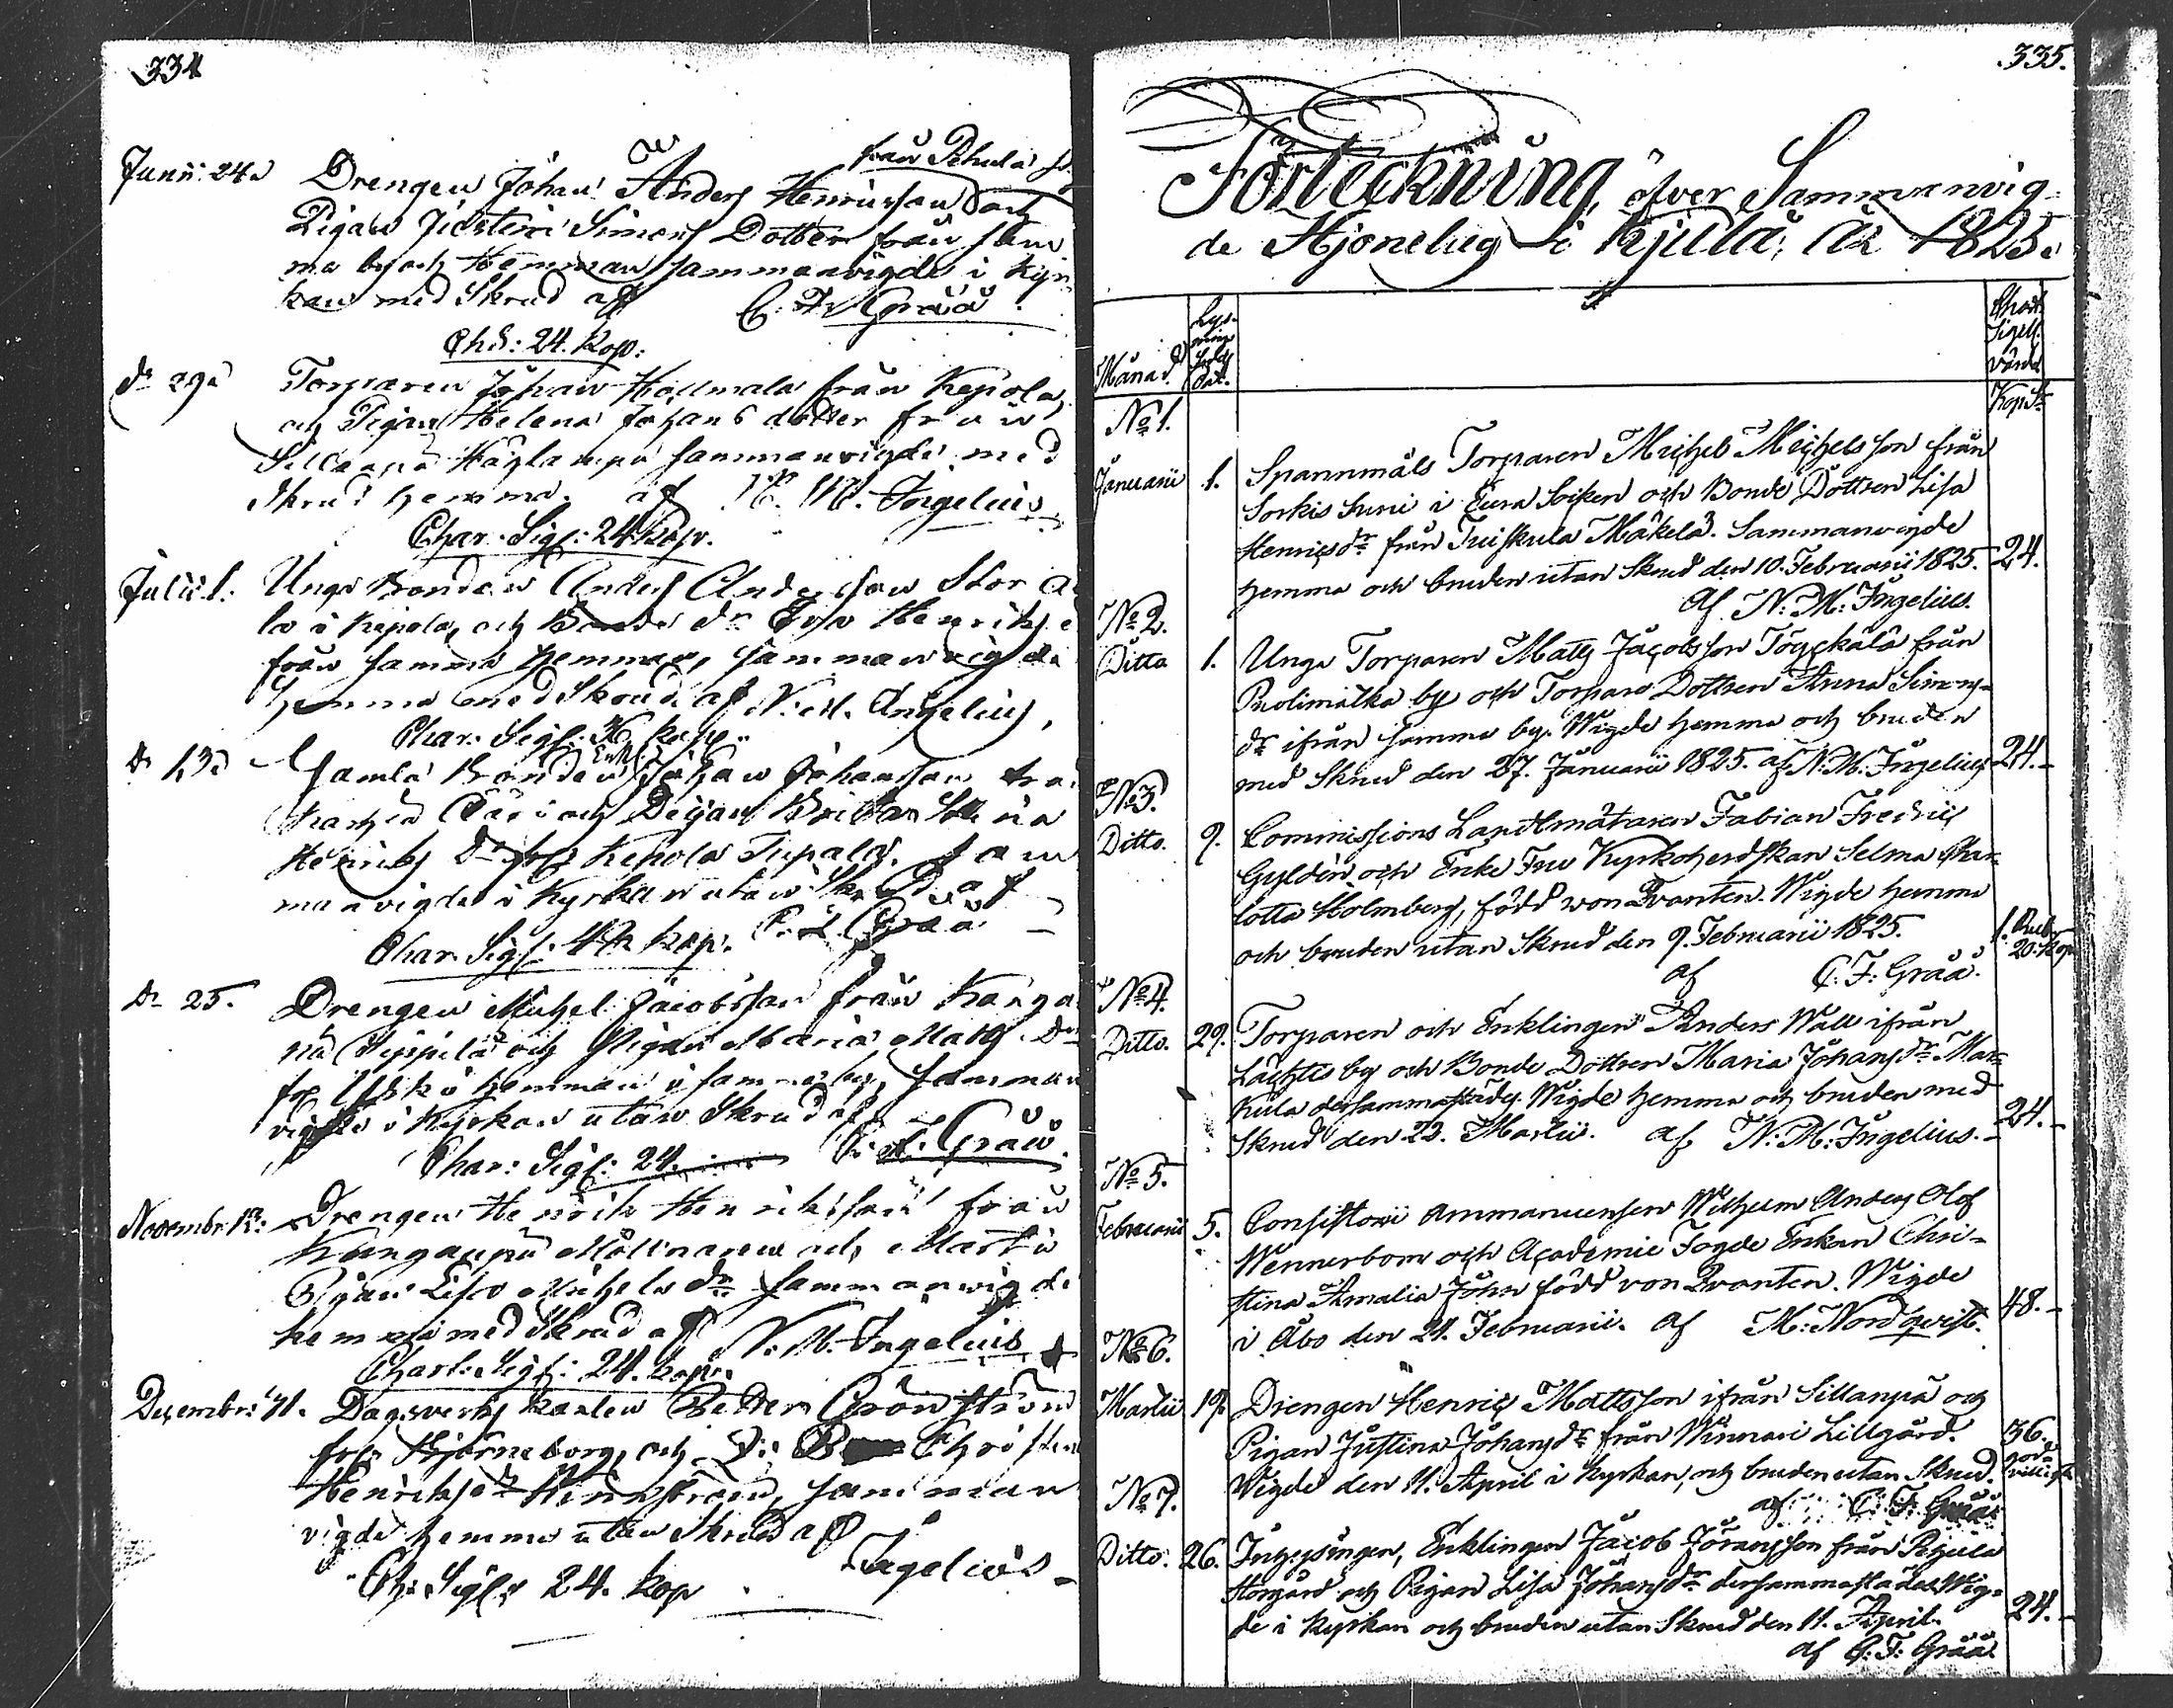 334
Junii 24.
från Pehula
Drengen Johan Anders Henricsson och
Pigan Justina Simons Dotter från sam
ma by och Hemman sammanvigde i Kyr
kan med Skrud af C. F. Gråå.
Chs: 24. Kop:
Dº 29
Torparen Johan Hallmala från Kepola,
och Pigan Helena Johans dotter från
Sillanpä sammanvigde med
Skrud hemma. af N. M. Ingelius
Char. Sigf: 24 Kop.
Julii 1.
Unge Bonden Anders Andersson Stor
la i Kepola, och Bonde dr Eva Henriks
från samma hemman, sammanvigde
hemma med Skrud af N. M. Ingelius,
Char: Sigf: Kop.
Dº 13
Gamla Bonden Enkl. Johan Johansson
och Pigan Brita Stina
Henriks Dr från Kepola Tupala. Sam
manvigde i Kyrkan utan Skrud af
Char. Sigf: Kop. C. F. Gråå
Dº 25.
Drengen Michel Jacobsson från Kanga
nä Seppilä och Pigan Maria Matts Dr
hemman i samma by, samman
vigde i Kyrkan utan Skrud af
Char: Sigf: 24. C. F. Gråå.
Novembr 13:
Drengen Henrik Henriksson från
Kanganpä Möllnaren och
Pigan Lisa Michels dr sammanvigde
hemma med Skrud af N. M. Ingelius
Charl: Sigf: 24. kop.
Decembr: 41.
Dagsverks karlen Petter Grönström
från Björneborg, och Christina
Henriks dr, samman
vigde hemma utan Skrud af
Ingelius
Ch: Sigf: 24. kop
335.
Förteckning, öfver Sammanvig-
de Hjonelag i Kjulå, År 1825.
Månad.
Lys-
nings
Sedl.
Dat.
Chart.
Sigill.
Värde
Kop. Sr
No 1.
Januarii 1. Spannmåls Torparen Michel Michelsson från
Sorkis Suni i Eura Socken och Bonde Dottren Lisa
Henrics dr från Tuiskula Mäkelä. Sammanvigde
hemma och bruden utan Skrud den 10. Februarii 1825. 24.
Af N: M: Ingelius.
No 2.
Ditto 1. Unge Torparen Matts Jacobsson Töyckälä från
Puolimatka by och Torpare Dottren Anna Simons-
dr ifrån samma by. Wigde hemma och bruden
med Skrud den 27. Januarii 1825. af N. M. Ingelius 24.-
No 3.
Ditto. 9. Commissions Landtmätaren Fabian Fredric
Gyldén och Enke Fru Kyrkoherdskan Selma Char-
lotta Holmberg, född von Qvanten. Wigde hemma
och bruden utan Skrud den 9. Februarii 1825. 1. Rub.
20. Kop.
af C: F: Gråå.
No 4.
Ditto. 29. Torparen och Enklingen Anders Wall ifrån
Lächtis by och Bonde Dottren Maria Johans dr Mar-
kula dersammastädes. Wigde hemma och bruden med
Skrud den 22. Martii. af N: M: Ingelius. 24.-
No 5.
Februarii 5. Consistorii Ammanuensen Wilhelm Anders Olof
Wennerbom och Academie Fogde Enkan Chri-
stina Amalia John född von Qvanten. Wigde
i Åbo den 24. Februarii. af M: Nordqvist. 48.-
No 6.
Martii 19. Drengen Henric Mattsson ifrån Sillanpä och
Pigan Justina Johans dr från Winnari Lillgård. 36.
Wigde den 11. April i Kyrkan, och bruden utan Skrud.
af C. F. Gråå
No 7.
Ditto. 26. Inhysingen, Enklingen Jacob Jöransson från Pehula
Storgård och Pigan Lisa Johans dr dersammastädes. Wig-
de i Kyrkan och bruden utan Skrud den 11. April. 24.-
af C: F: Gråå.